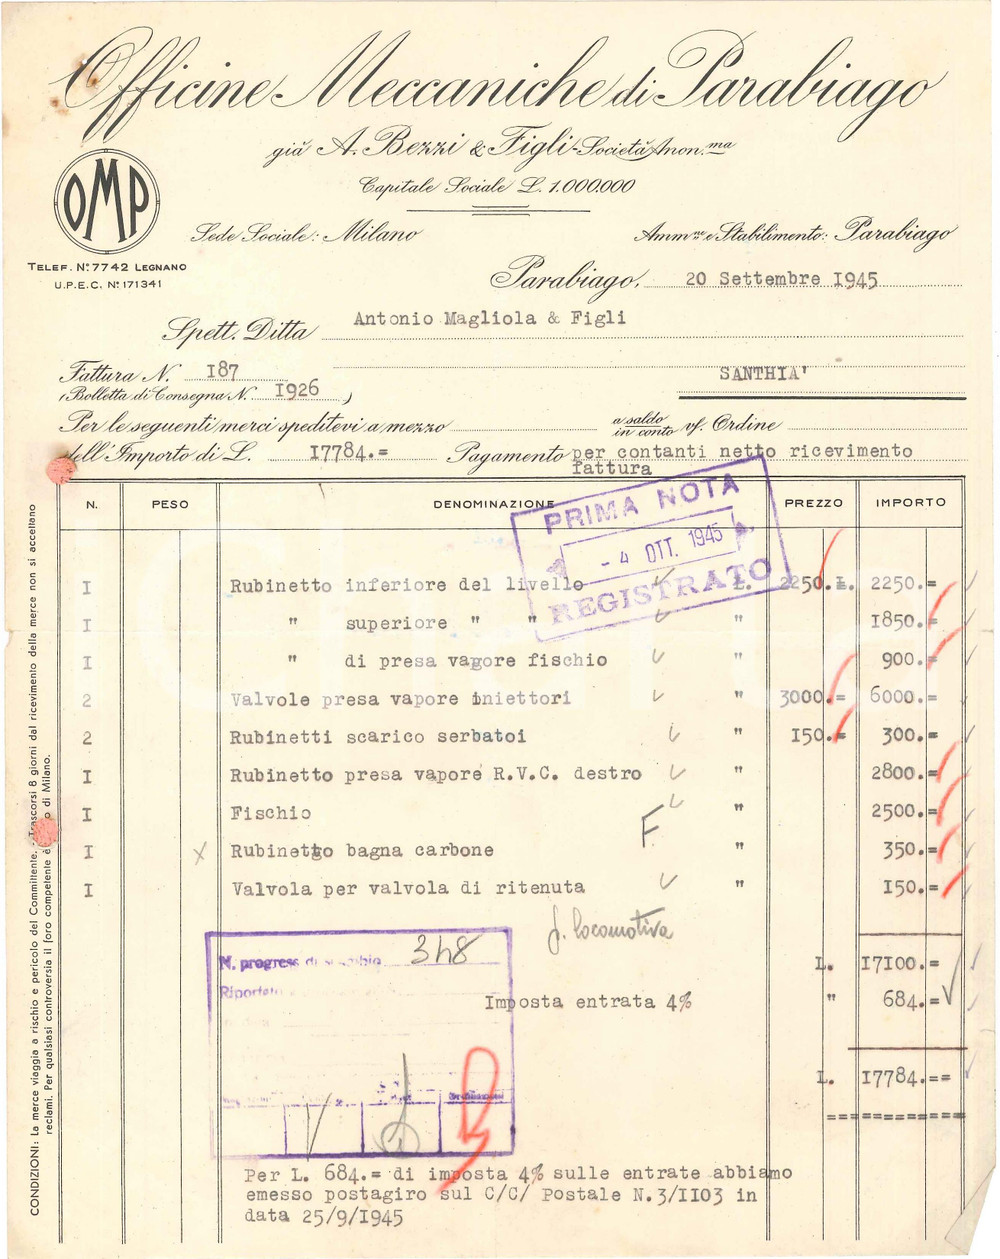 Officine Meccaniche di Parabiago
già A. Bezzi & Figli - Società Anon.ma
Capitale Sociale L. 1.000.000
OMP
Sede Sociale: Milano Amm.ne e Stabilimento: Parabiago
TELEF. N.° 7742 LEGNANO
U.P.E.C. N.° 171341
Parabiago, 20 Settembre 1945
Spett. Ditta Antonio Magliola & Figli
Fattura N. I87
SANTHIA'
(Bolletta di Consegna N. I926)
Per le seguenti merci speditevi a mezzo a saldo in conto vs. Ordine
dell'Importo di L. I7784.= Pagamento per contanti netto ricevimento
fattura
N. PESO DENOMINAZIONE PREZZO IMPORTO
PRIMA NOTA
- 4 OTT. 1945
REGISTRATO
I Rubinetto inferiore del livello L. 2250.= L. 2250.=
I " superiore " " " I850.=
I " di presa vagore fischio " 900.=
2 Valvole presa vapore iniettori " 3000.= 6000.=
2 Rubinetti scarico serbatoi " I50.= 300.=
I Rubinetto presa vapore R.V.C. destro " 2800.=
I Fischio " 2500.=
F
I Rubinetto bagna carbone " 350.=
I Valvola per valvola di ritenuta " I50.=
f. locomotiva
N. progress. di 348
L. I7100.=
Riportato
Imposta entrata 4% " 684.=
L. I7784.==
Per L. 684.= di imposta 4% sulle entrate abbiamo
emesso postagiro sul C/C/ Postale N.3/II03 in
data 25/9/I945
CONDIZIONI: La merce viaggia a rischio e pericolo del Committente. - Trascorsi 8 giorni dal ricevimento della merce non si accettano
reclami. Per qualsiasi controversia il foro competente è o di Milano.